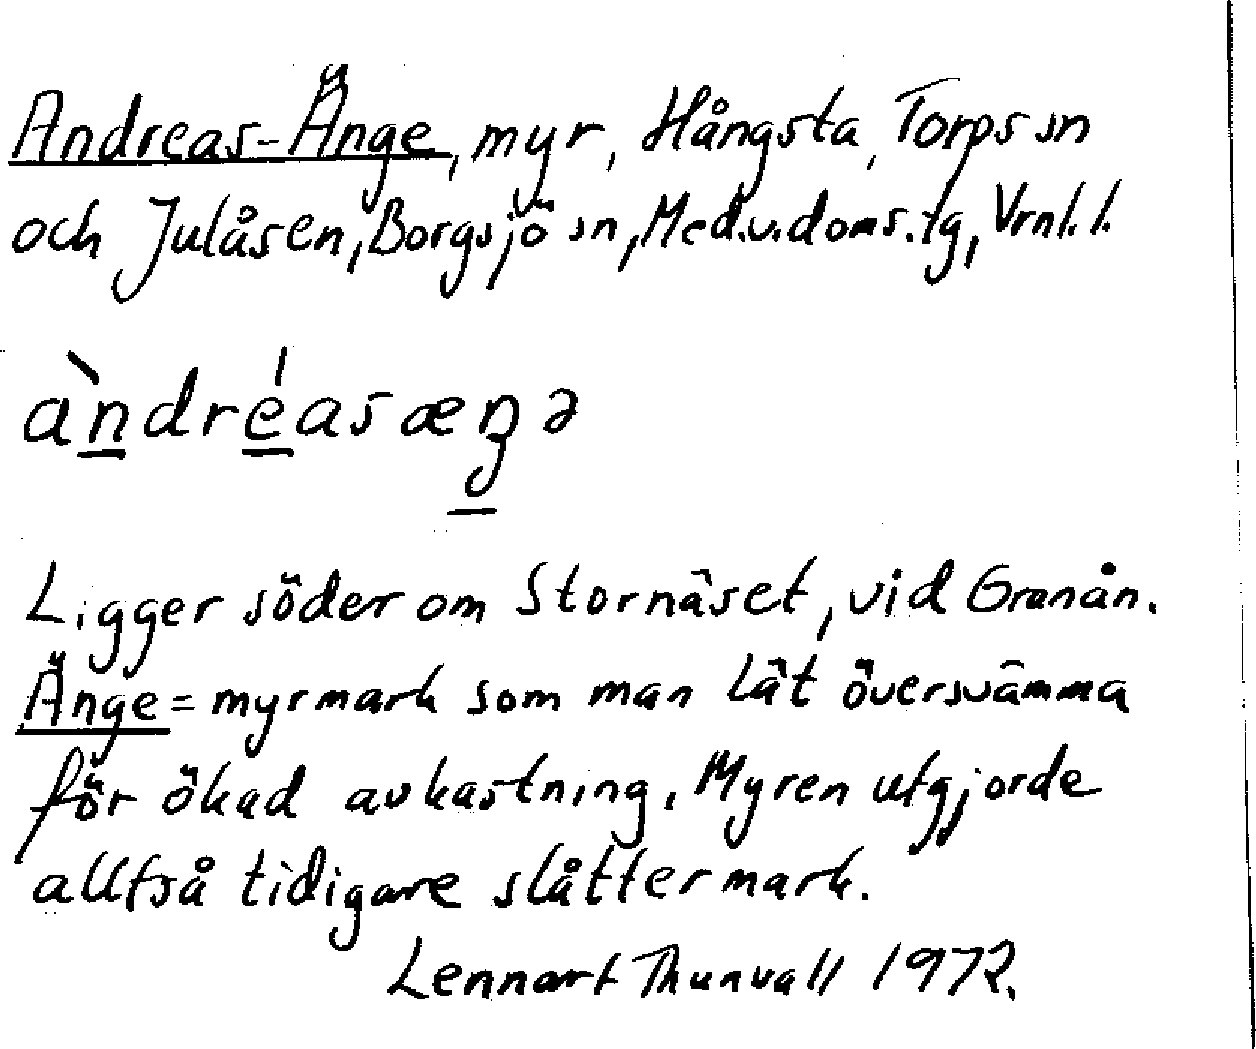 Andreas-Änge, myr, Hångsta, Torps sn
och Julåsen, Borgsjö sn, Med.v.doms.tg, Vrnl.l.
àndréasæŋə
Ligger söder om Stornäset, vid Granån.
Änge = myrmark som man lät översvämma
för ökad avkastning. Myren utgjorde
alltså tidigare slåttermark.
Lennart Thunvall 1972.